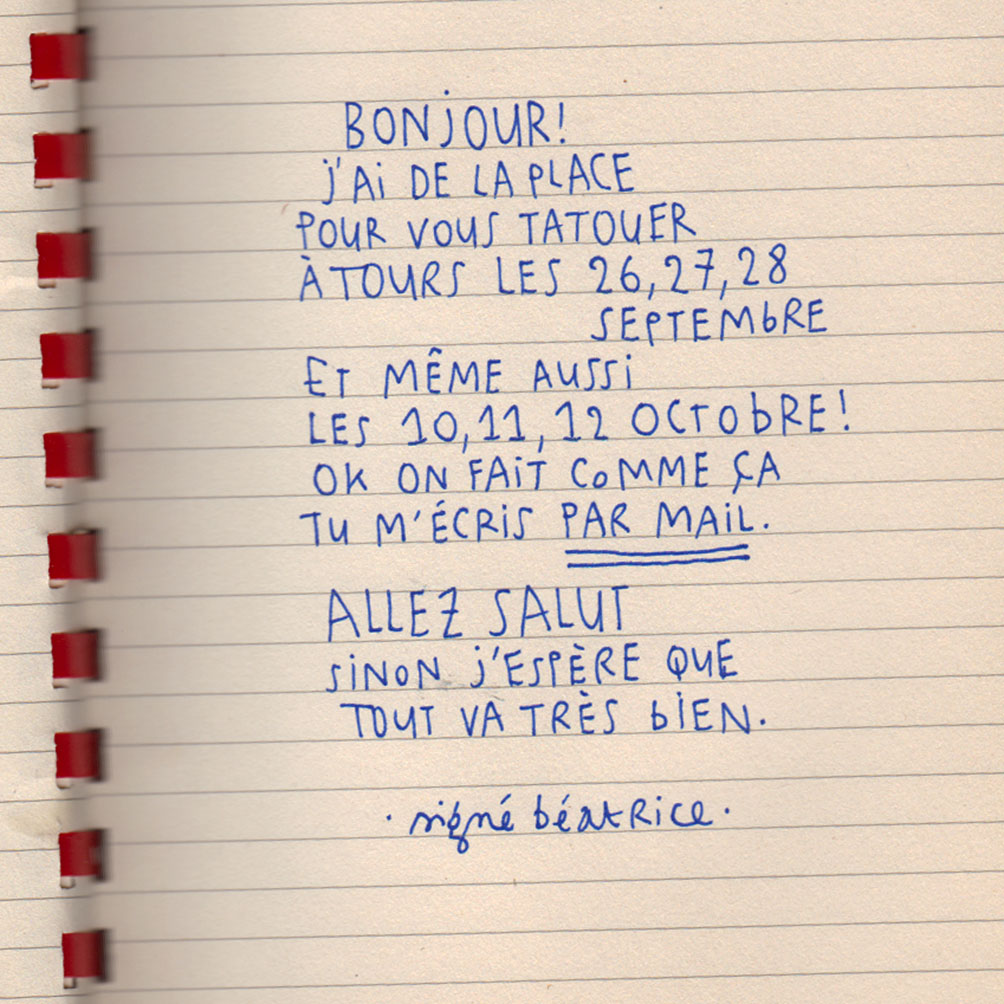 BONJOUR!
J'Ai DE LA PLACE
POUR VOUS TATOUER
À TOURS LES 26, 27, 28
SEPTEMbRE
ET MÊME AUSSi
LES 10, 11, 12 OCTObRE!
OK ON FAiT COMME ÇA
TU M'ÉCRiS PAR MAiL.
ALLEZ SALUT
SiNON J'ESPÈRE QUE
TOUT VA TRÈS biEN.
· signé béatrice ·